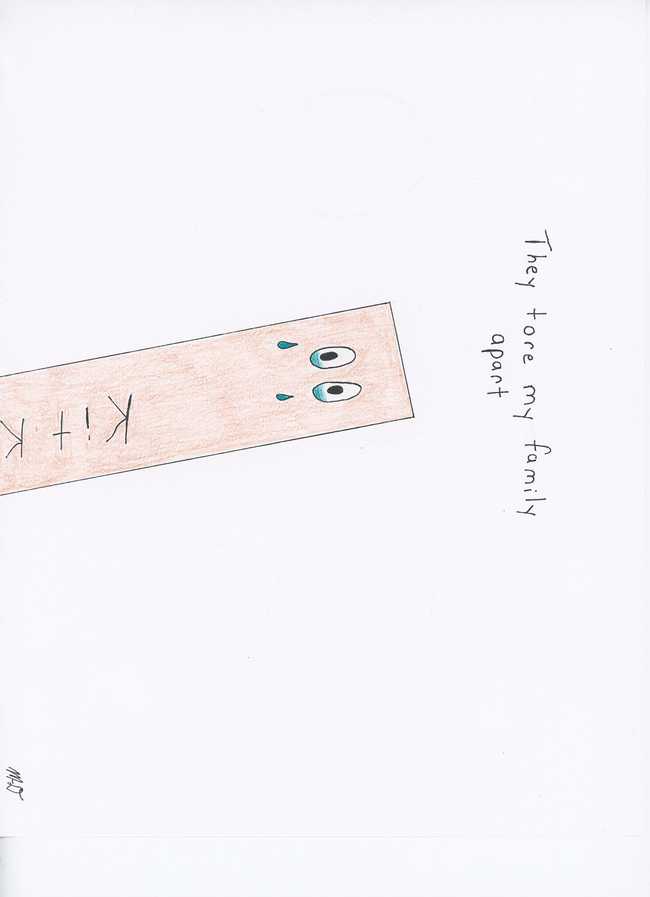 They tore my family
apart
Kit K